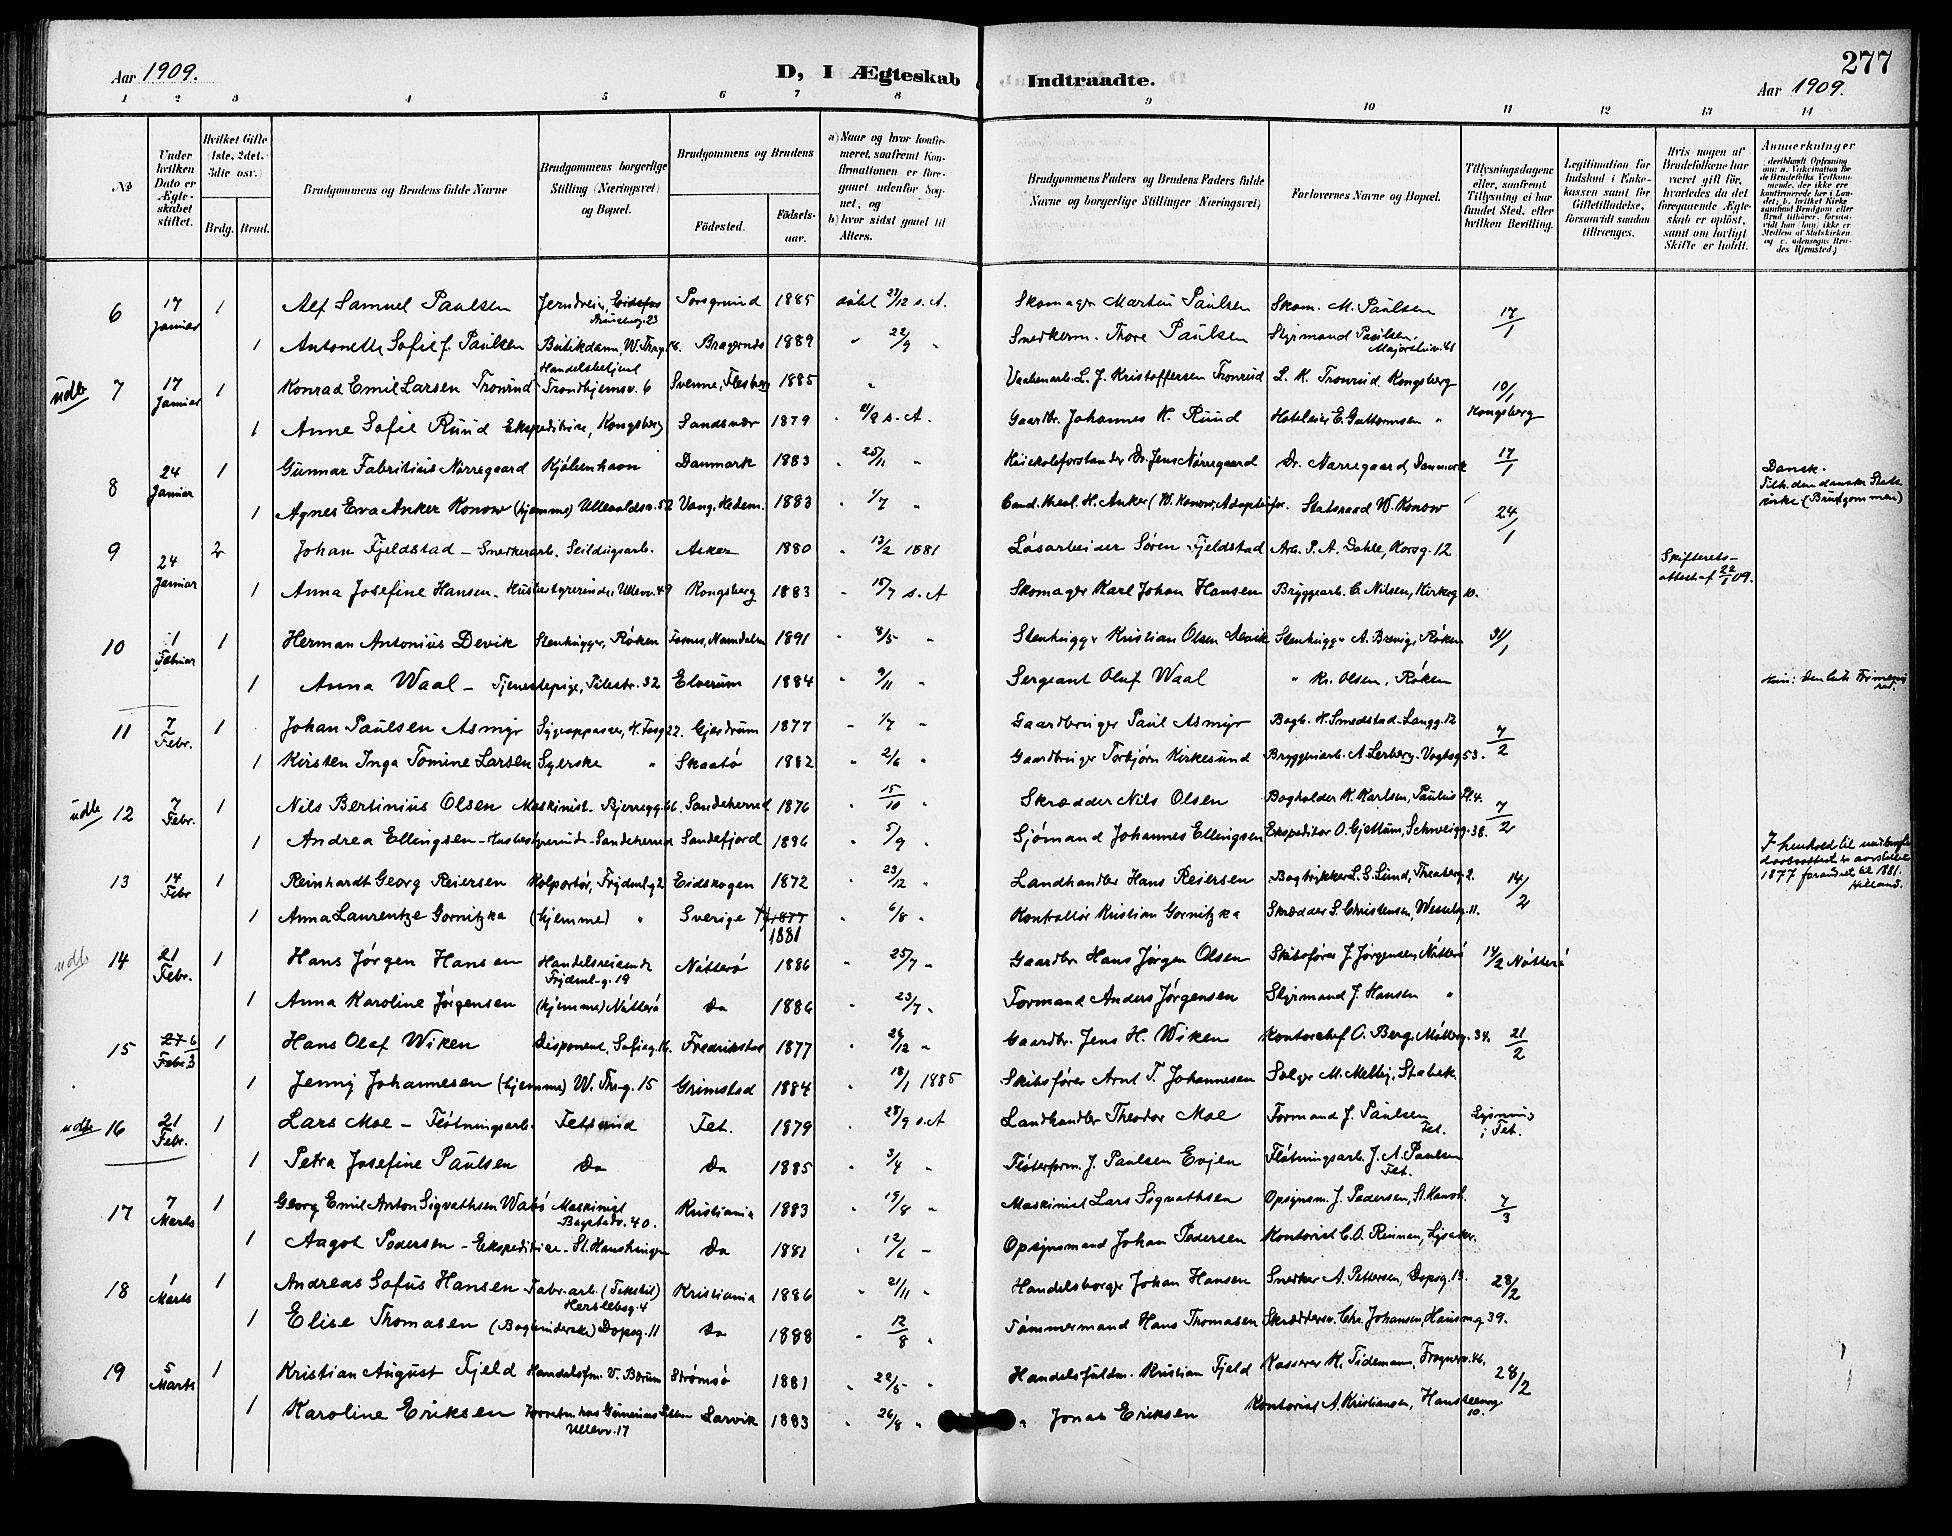 277
Aar 1909.
D, I Ægteskab Indtraadte.
Aar 1909.
1 2 3 4 5 6 7 8 9 10 11 12 13 14
№
Under hvilken Dato er Ægteskabet stiftet.
Hvilket Gifte (1ste, 2det, 3die osv.)
Brdg. Brud.
Brudgommens og Brudens fulde Navne
Brudgommens borgerlige Stilling (Næringsvei) og Bopæl.
Brudgommens og Brudens
Fødested.
Fødselsaar.
a) Naar og hvor konfirmeret, saafremt Konfirmationen er foregaaet udenfor Sognet, og
b) hvor sidst gaaet til Alters.
Brudgommens Faders og Brudens Faders fulde Navne og borgerlige Stillinger (Næringsvei)
Forlovernes Navne og Bopæl.
Tillysningsdagene eller, saafremt Tillysning ei har fundet Sted, efter hvilken Bevilling.
Legitimation for Indskud i Enkekassen samt for Giftetilladelse, forsaavidt saadan tiltrænges.
Hvis nogen af Brudefolkene har været gift før, hvorledes da det foregaaende Ægteskab er opløst, samt om lovligt Skifte er holdt.
Anmærkninger
6 17 Januar 1 Alf Samuel Paulsen Porsgrund 1885 døbt 23/12 s. A. Skomager Martin Paulsen Skom. M. Paulsen 17/1
1 Antonette Sofie f. Paulsen Butikdame, W. Thrg. 18. Bragernes 1889 " 22/9 " Snedkerm. Thore Paulsen Styrmand Paulsen,
udb 7 17 Januar 1 Konrad Emil Larsen Tronrud Handelsbetjent Trondhjemsv. 6 Svenne, Flesberg 1885 " L. J. Kristoffersen Tronrud L. K. Tronrud Kongsberg 10/1
1 Anne Sofie Ruud Ekspeditrice, Kongsberg Sandsvær 1879 s. A. Gaardbr. Johannes H. Ruud Hoteleier E. Guttormsen " Kongsberg
8 24 Januar 1 Gunnar Fabritius Nørregaard Kjøbenhavn Danmark 1883 " 25/11 " Høiskoleforstander Dr. Jens Nørregaard Dr. Nørregaard, Danmark 17/1 Dansk.
Tilh. den danske Statskirke (Brudgommen)
1 Agnes Eva Anker Konow (hjemme) Ullevoldsv. 52 Vang, Hedem. 1883 " 1/7 " Cand. theol. H. Anker (W. Konow, Adoptivfar. Statsraad W. Konow 24/1
9 24 Januar 2 Johan Fjeldstad - Snedkerarb. Seildugsarb. Asker 1880 " 13/2 1881 Løsarbeider Søren Fjeldstad Arb. P. A. Dahle, Korsg. 12 Skifterets-attest af 22/1 09.
1 Anna Josefine Hansen - Husbestyrerinde, Ullevv. 49 Kongsberg 1883 " 15/7 s. A Skomager Karl Johan Hansen Bryggearb. C. Nilsen, Kirkeg 10.
10 1 Februar 1 Herman Antonius Devik Stenhugger, Røken Fosnes, Namdalen 1891 " 8/5 " Stenhugger Kristian Olsen Devik Stenhugger A. Brevig, Røken 31/1
1 Anna Waal - Tjenestepige, Pilestr. 32 Elverum 1884 " 9/11 " Sergeant Oluf Waal " Kr. Olsen, Røken
11 7 Febr. 1 Johan Paulsen Asmyr Sygepasser, K. Torg 22. Gjerdrum 1877 " 1/7 " Gaardbruger Paul Asmyr Bagb. H. Smedstad - Langg. 12 7/2
1 Kirsten Inga Tomine Larsen Syerske " Skaatø 1882 " 2/6 " Gaardbruger Torbjørn Kirkesund Bryggeriarb. A. Lerberg - Vogtsg 53.
udb 12 7 Febr. 1 Nils Bertinius Olsen Maskinist - Bjerregg. 66. Sandeherred 1876 " 15/10 " Skrædder Nils Olsen Bogholder K. Karlsen, Paulus Pl. 4. 7/2
1 Andrea Ellingsen - Husbestyrerinde - Sandeherred Sandefjord 1886 " 5/9 " Sjømand Johannes Ellingsen Ekspeditør O. Gjettum, Schweigg. 38.
13 14 Febr 1 Reinhardt Georg Reiersen Kolportør, Frydenl.g 2 Eidskogen 1872 " 23/12 " Landhandler Hans Reiersen Bogtrykker L. S. Lund, Theaterg 2. 14/2
I henhold til
1877 forandret til 1881.
1 Anna Laurentze Gornitzka (hjemme) " Sverige 1877 1881 " 6/8 " Kontrollør Kristian Gornitzka Skrædder S. Christensen, Wesselsg. 11.
udb 14 21 Febr. 1 Hans Jørgen Hansen Handelsreisende Frydenl-g. 19 Nøtterø 1886 " 25/7 " Gaardbr. Hans Jørgen Olsen Skibsfører J. Jørgensen, Nøtterø 14/2 Nøtterø
1 Anna Karoline Jørgensen (hjemme) Nøtterø Do 1886 " 23/7 " Formand Anders Jørgensen Styrmand J. Hansen "
15 27 6 Febr. 3 1 Hans Olaf Wiken Disponent, Sofieg. 16. Fredrikstad 1877 " 26/12 " Gaardbr. Jens H. Wiken Kontorchef O. Berg, Møllerg. 34. 21/2
1 Jenny Johannesen (hjemme) W. Thr-g. 15 Grimstad 1884 " 18/1 1885 Skibsfører Arnt T. Johannesen Selger M. Melby, Stabek.
udb 16 21 Febr. 1 Lars Moe - Fløtningsarb. Fetsund Fet. 1879 " 28/9 s. A Landhandler Theodor Moe Formand J. Paulsen Fet. Lysning i Fet.
1 Petra Josefine Paulsen Do Do 1885 " 3/4 " Fløterform. J. Paulsen Evjen Fløtningsarb. J. A. Paulsen Fet.
17 7 Marts 1 Georg Emil Anton Sigvathsen Wabø Maskinist Bogstadv. 40. Kristiania 1883 " 19/8 " Maskinist Lars Sigvathsen Opsynsm. J. Pedersen, St. Hansh. 7/3
1 Aagot Pedersen - Ekspeditrice - St. Hanshaugen Do 1881 " 12/6 - Opsynsmand Johan Pedersen Kontorist C. O. Rinnan, Lysaker.
18 1 Marts 1 Andreas Sofus Hansen Fabr. arb. (Tekstil) Herslebsg. 4 Kristiania 1886 " 21/11 " Handelsborger Johan Hansen Snedker A. Pettersen, Dopsg. 19. 28/2
1 Elise Thomasen (Bogbinderske) Dopsg. 11 Do 1888 " 12/8 " Tømmermand Hans Thomasen Skræddersv. Chr. Johansen, Hausmg 39.
19 5 Marts 1 Kristian August Fjeld Handelsfm. V. Bærum Strømsø 1881 " 22/5 " Handelsfuldm. Kristian Fjeld Kasserer K. Tidemann, Frognerv. 46. 28/2
1 Karoline Eriksen Ullevv. 17 Larvik 1883 " 26/8 " " Jonas Eriksen Kontorist A. Kristiansen, Hansteensg 10.